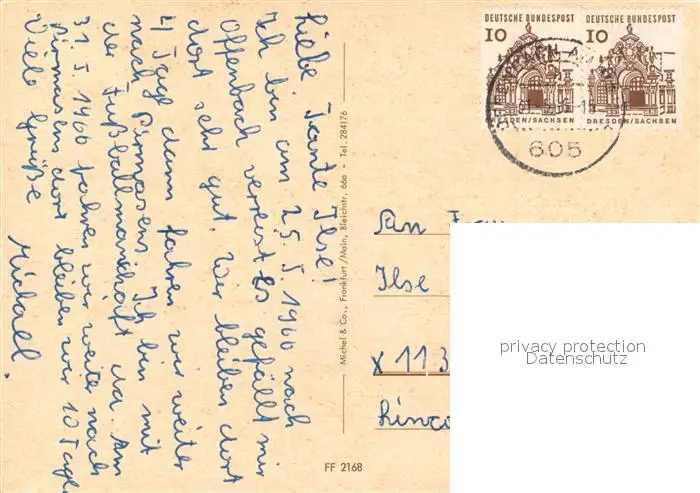 Liebe Tante Ilse!
Ich bin am 25. 5. 1960 nach
Offenbach verreist Es gefällt mir
dort seht gut. Wir bleiben dort
4 Tage dann fahren wir weiter
nach Pirmasens. Ich bin mit
der Fußballmannschaft da. Am
31. 5. 1960 fahren wir weiter nach
Pirmasens dort bleiben wir 10 Tage.
Viele Grüße Michael.
Michel & Co., Frankfurt/Main, Bleichstr. 66a - Tel. 284176
FF 2168
DEUTSCHE BUNDESPOST
10
DRESDEN/SACHSEN
DEUTSCHE BUNDESPOST
10
DRESDEN/SACHSEN
605
An Frau
Ilse
X 113
privacy protection
Datenschutz